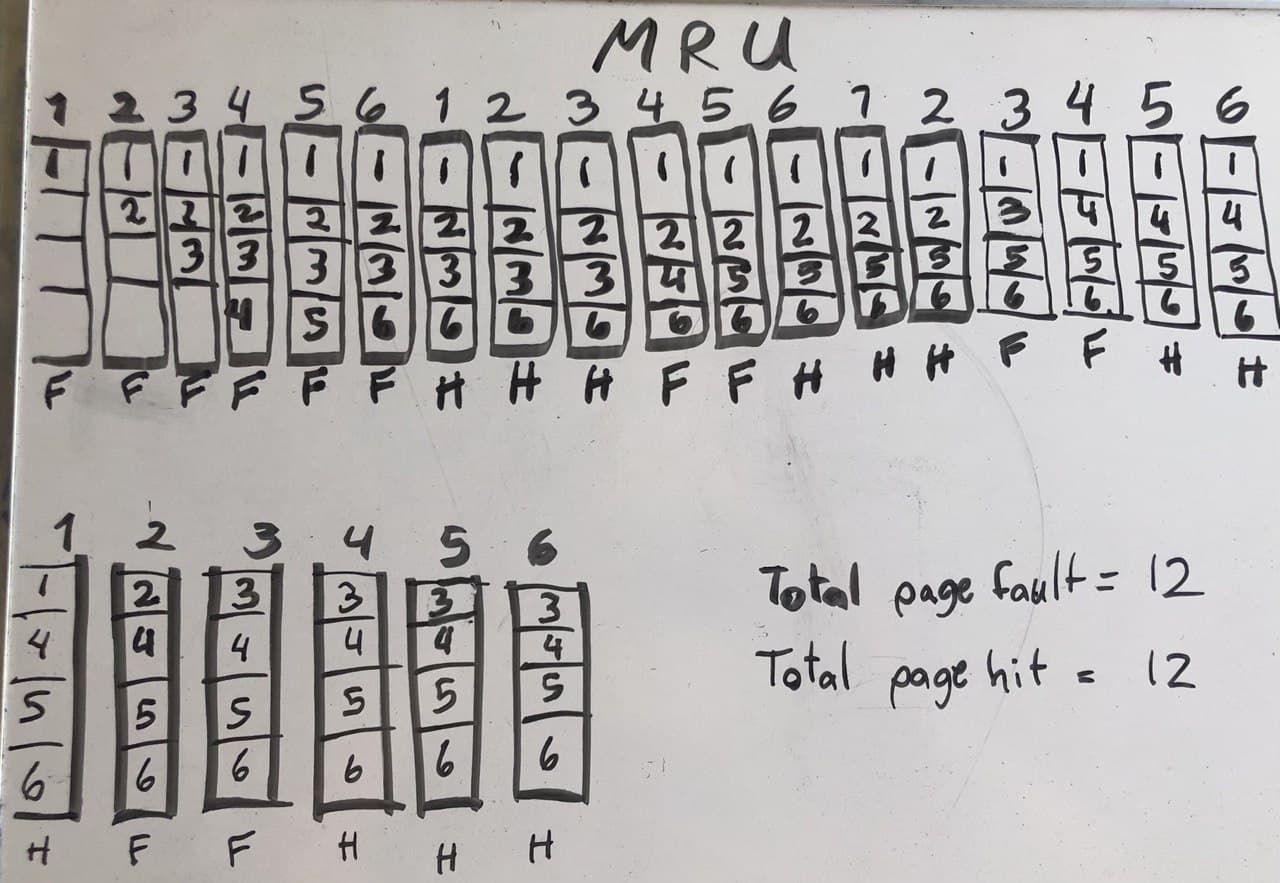 MRU
1 2 3 4 5 6 1 2 3 4 5 6 1 2 3 4 5 6
1 1 1 1 1 1 1 1 1 1 1 1 1 1 1 1 1 1
2 2 2 2 2 2 2 2 2 2 2 2 2 3 4 4 4
3 3 3 3 3 3 3 4 5 5 5 5 5 5 5 5
4 5 6 6 6 6 6 6 6 6 6 6 6 6 6
F F F F F F H H H F F H H H F F H H
1 2 3 4 5 6
1 2 3 3 3 3
4 4 4 4 4 4
5 5 5 5 5 5
6 6 6 6 6 6
H F F H H H
Total page fault = 12
Total page hit = 12